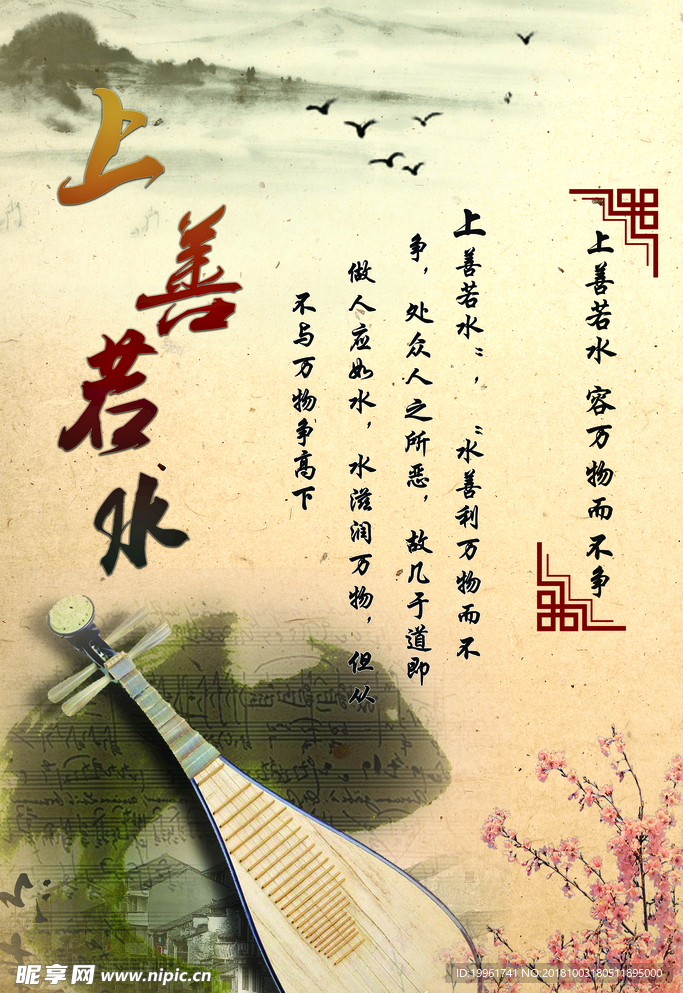 上善若水
上善若水 容万物而不争
上善若水”，“水善利万物而不
争，处众人之所恶，故几于道即
做人应如水，水滋润万物，但从
不与万物争高下
昵享网 www.nipic.cn
ID:19961741 NO:20181003180511895000